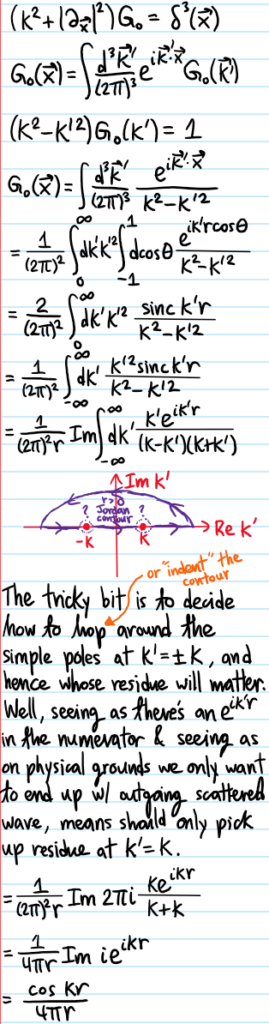 (k²+|∂_x⃗|²)G₀=δ³(x⃗)
G₀(x⃗)=∫d³k⃗'/(2π)³ e^{ik⃗'·x⃗}G₀(k⃗')
(k²-k'²)G₀(k')=1
G₀(x⃗)=∫d³k⃗'/(2π)³ e^{ik⃗'·x⃗}/(k²-k'²)
=1/(2π)² ∫₀^∞ dk'k'² ∫₋₁^1 dcosθ e^{ik'rcosθ}/(k²-k'²)
=2/(2π)² ∫₀^∞ dk'k'² sinc k'r/(k²-k'²)
=1/(2π)² ∫₋∞^∞ dk' k'²sinc k'r/(k²-k'²)
=1/((2π)²r) Im∫₋∞^∞ dk' k'e^{ik'r}/((k-k')(k+k'))
Im k'
r>0
? Jordan ?
contour
-k k Re k'
or "indent" the
contour
The tricky bit is to decide
how to hop around the
simple poles at k'=±k, and
hence whose residue will matter.
Well, seeing as there's an e^{ik'r}
in the numerator & seeing as
on physical grounds we only want
to end up w/ outgoing scattered
wave, means should only pick
up residue at k'=k.
=1/((2π)²r) Im 2πi ke^{ikr}/(k+k)
=1/(4πr) Im ie^{ikr}
=cos kr/(4πr)